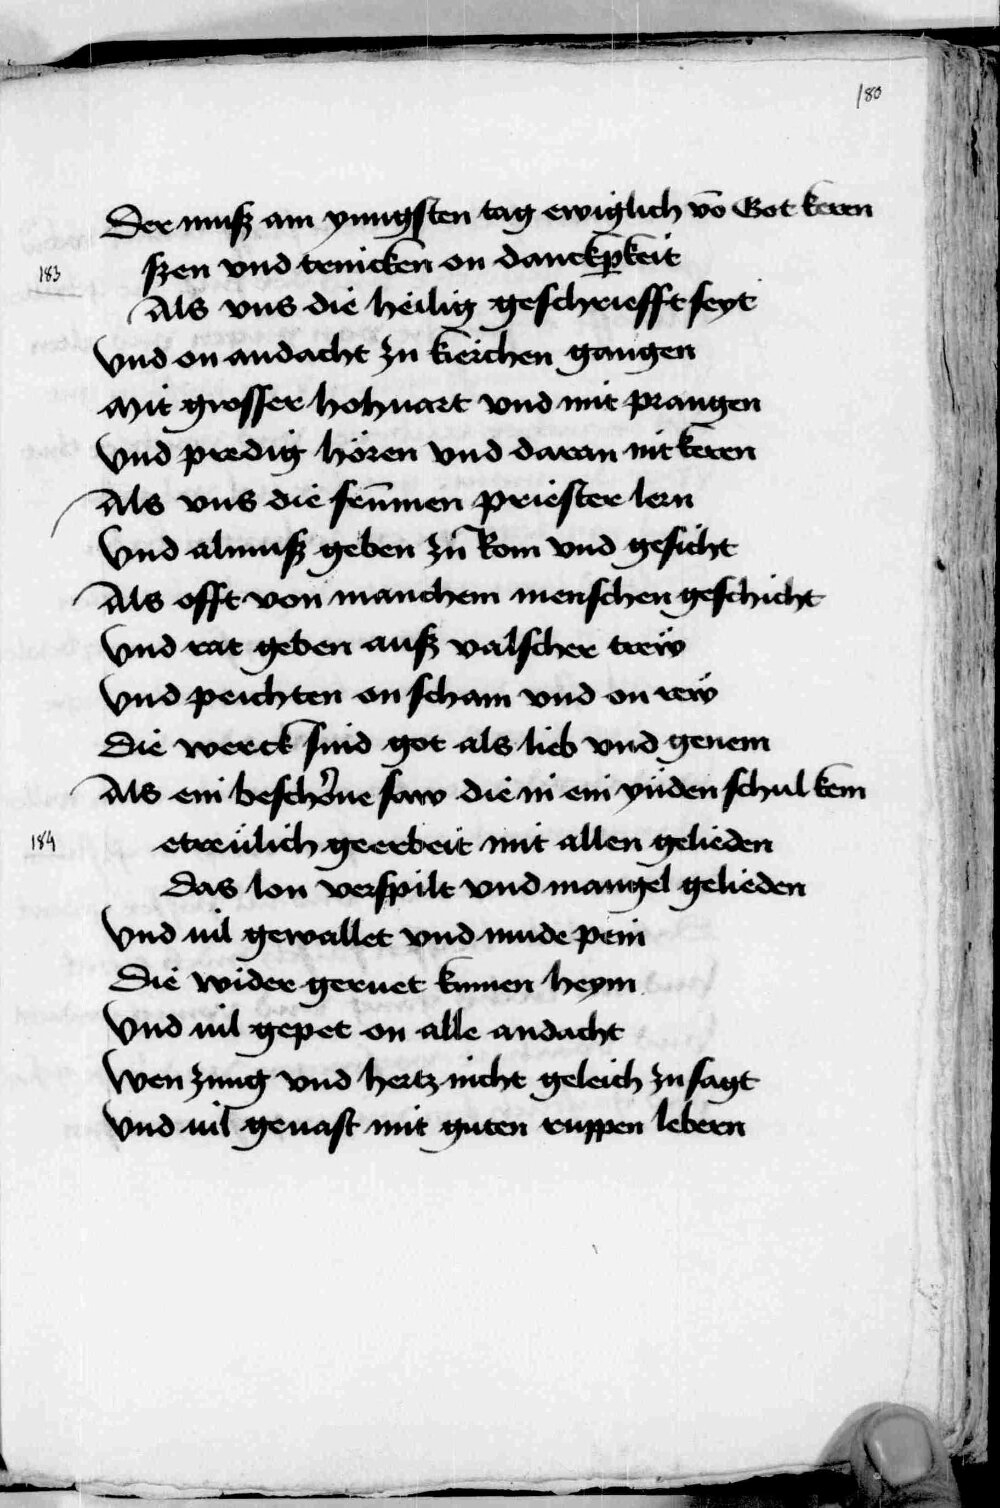 180
Der musz am yungsten tag ewiglich vō Got keren
183
szen vnd trincken on danckpkeit
Als vns die heilig geschriefft seyt
Vnd on andacht zu kirchen gangen
Mit grosser hohuart vnd mit prangen
Vnd predig hören vnd daran nit keren
Als vns die frūmen priester lern
Vnd almusz geben zu rom vnd gesicht
Als offt von manchem menschen geschicht
Vnd rat geben ausz valscher trew
Vnd peichten on scham vnd on rew
Die werck sind got als lieb vnd genem
Als ein beschorne saw die in ein yüden schul kem
184
etreülich geerbeit mit allen gelieden
Das lon verspilt vnd mangel gelieden
Vnd uil gewallet vnd mude pein
Die wider geruet kumen heym
Vnd uil gepet on alle andacht
Wen zung vnd hertz nicht geleich zu sagt
Vnd uil geuast mit guten ruppen lebern